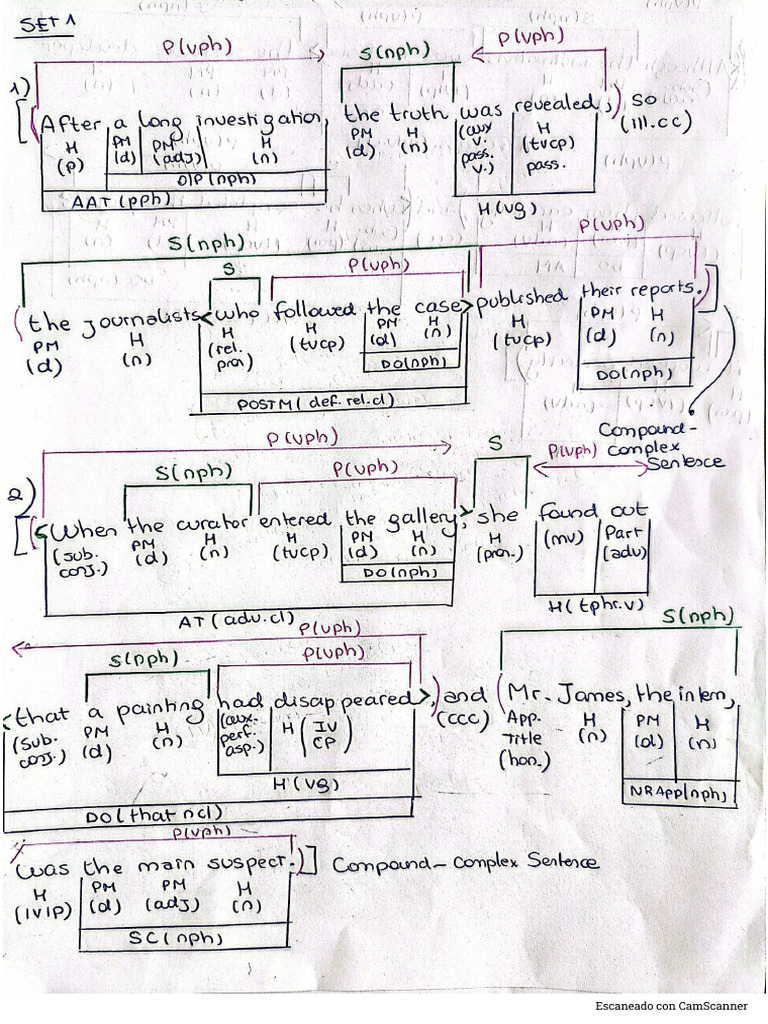 SET 1
P(vph) S(nph) P(vph)
1) [(After a long investigation, the truth was revealed;) so
H PM PM H PM H (aux H (ill.cc)
(p) (d) (adj) (n) (d) (n) v. (tvcp)
pass. pass.
v.)
DIP(nph)
AAT(pph) H(vg)
S(nph) P(vph)
S P(vph)
(the journalists <who followed the case> published their reports.)]
PM H H H PM H H PM H
(d) (n) (rel. (tvcp) (d) (n) (tvcp) (d) (n)
pron)
DO(nph) DO(nph)
POSTM(def.rel.cl)
Compound-
complex
Sentence
P(vph) S P(vph)
S(nph) P(vph)
2) [(<When the curator entered the gallery,> she found out
(sub. PM H H PM H H (mv) Part
conj.) (d) (n) (tvcp) (d) (n) (pron.) (adv)
DO(nph)
AT(adv.cl) H(tphr.v)
P(vph) S(nph)
S(nph) P(vph)
<that a painting had disappeared>,) and (Mr. James, the intern,
(sub. PM H (aux. H (IV (ccc) App. H PM H
conj.) (d) (n) perf. CP) Title (n) (d) (n)
asp.) (hon.)
H(vg) NRApp(nph)
DO(that ncl)
P(vph)
was the main suspect.)] Compound-Complex Sentence
H PM PM H
(IVIP) (d) (adj) (n)
SC(nph)
Escaneado con CamScanner